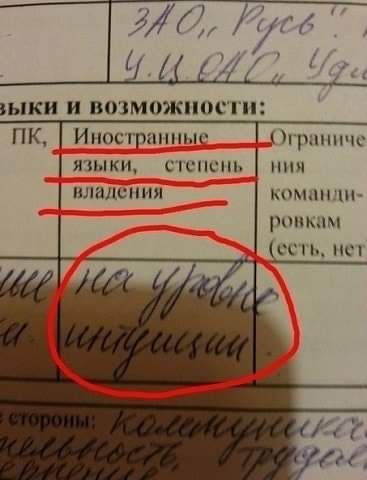 ЗАО „Русь".
У.Ц.ОАО „Удм
выки и возможности:
ПК,
Иностранные языки, степень владения
Ограниче
ния
команди-
ровкам
(есть, нет
ные
на уровне
и.
интуиции.
е стороны: коммуника
тельность, трудол